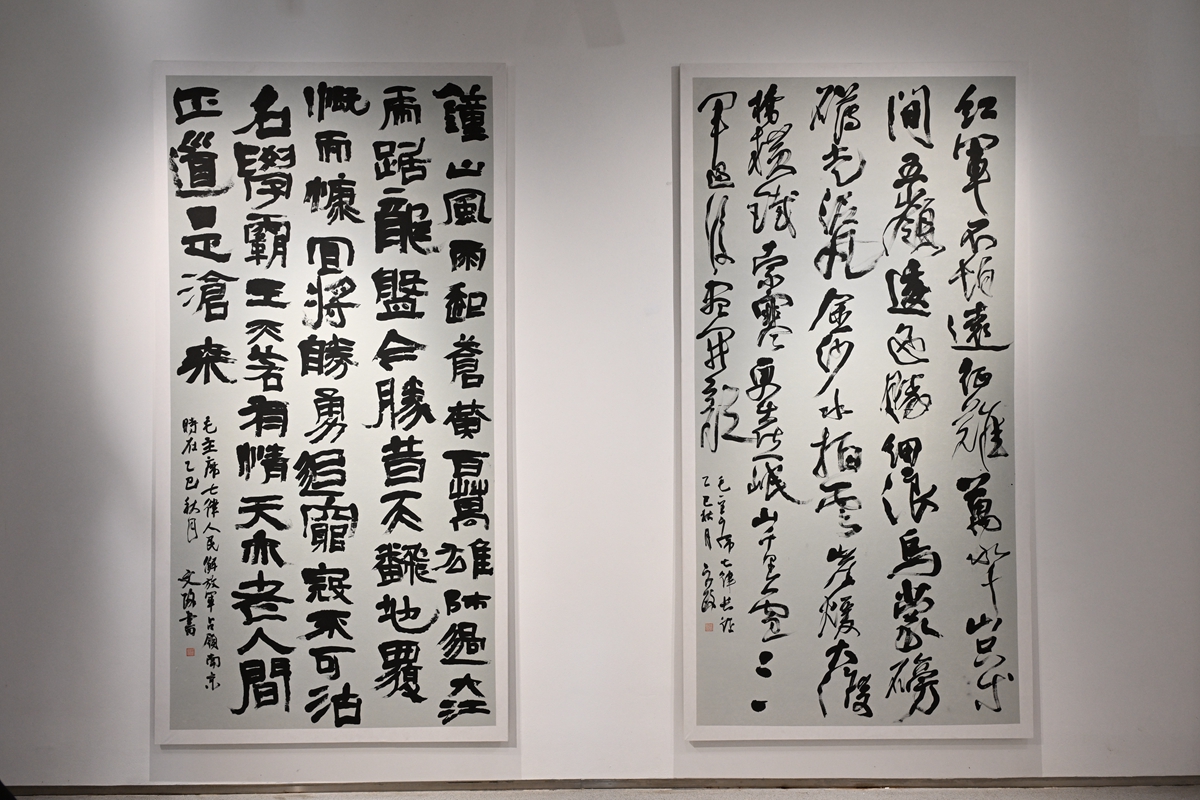 紅軍不怕遠征難萬水千山只等
間五嶺逶迤騰細浪烏蒙磅
礴走泥丸金沙水拍雲崖暖大渡
橋橫鐵索寒更喜岷山千里雪三
軍過後盡開顏
毛主席七律長征
乙巳秋月
鐘山風雨起蒼黃百萬雄師過大江
虎踞龍盤今勝昔天翻地覆
慨而慷宜將賸勇追窮寇不可沽
名學霸王天若有情天亦老人間
正道是滄桑
毛主席七律人民解放軍占領南京
時在乙巳秋月 文 書